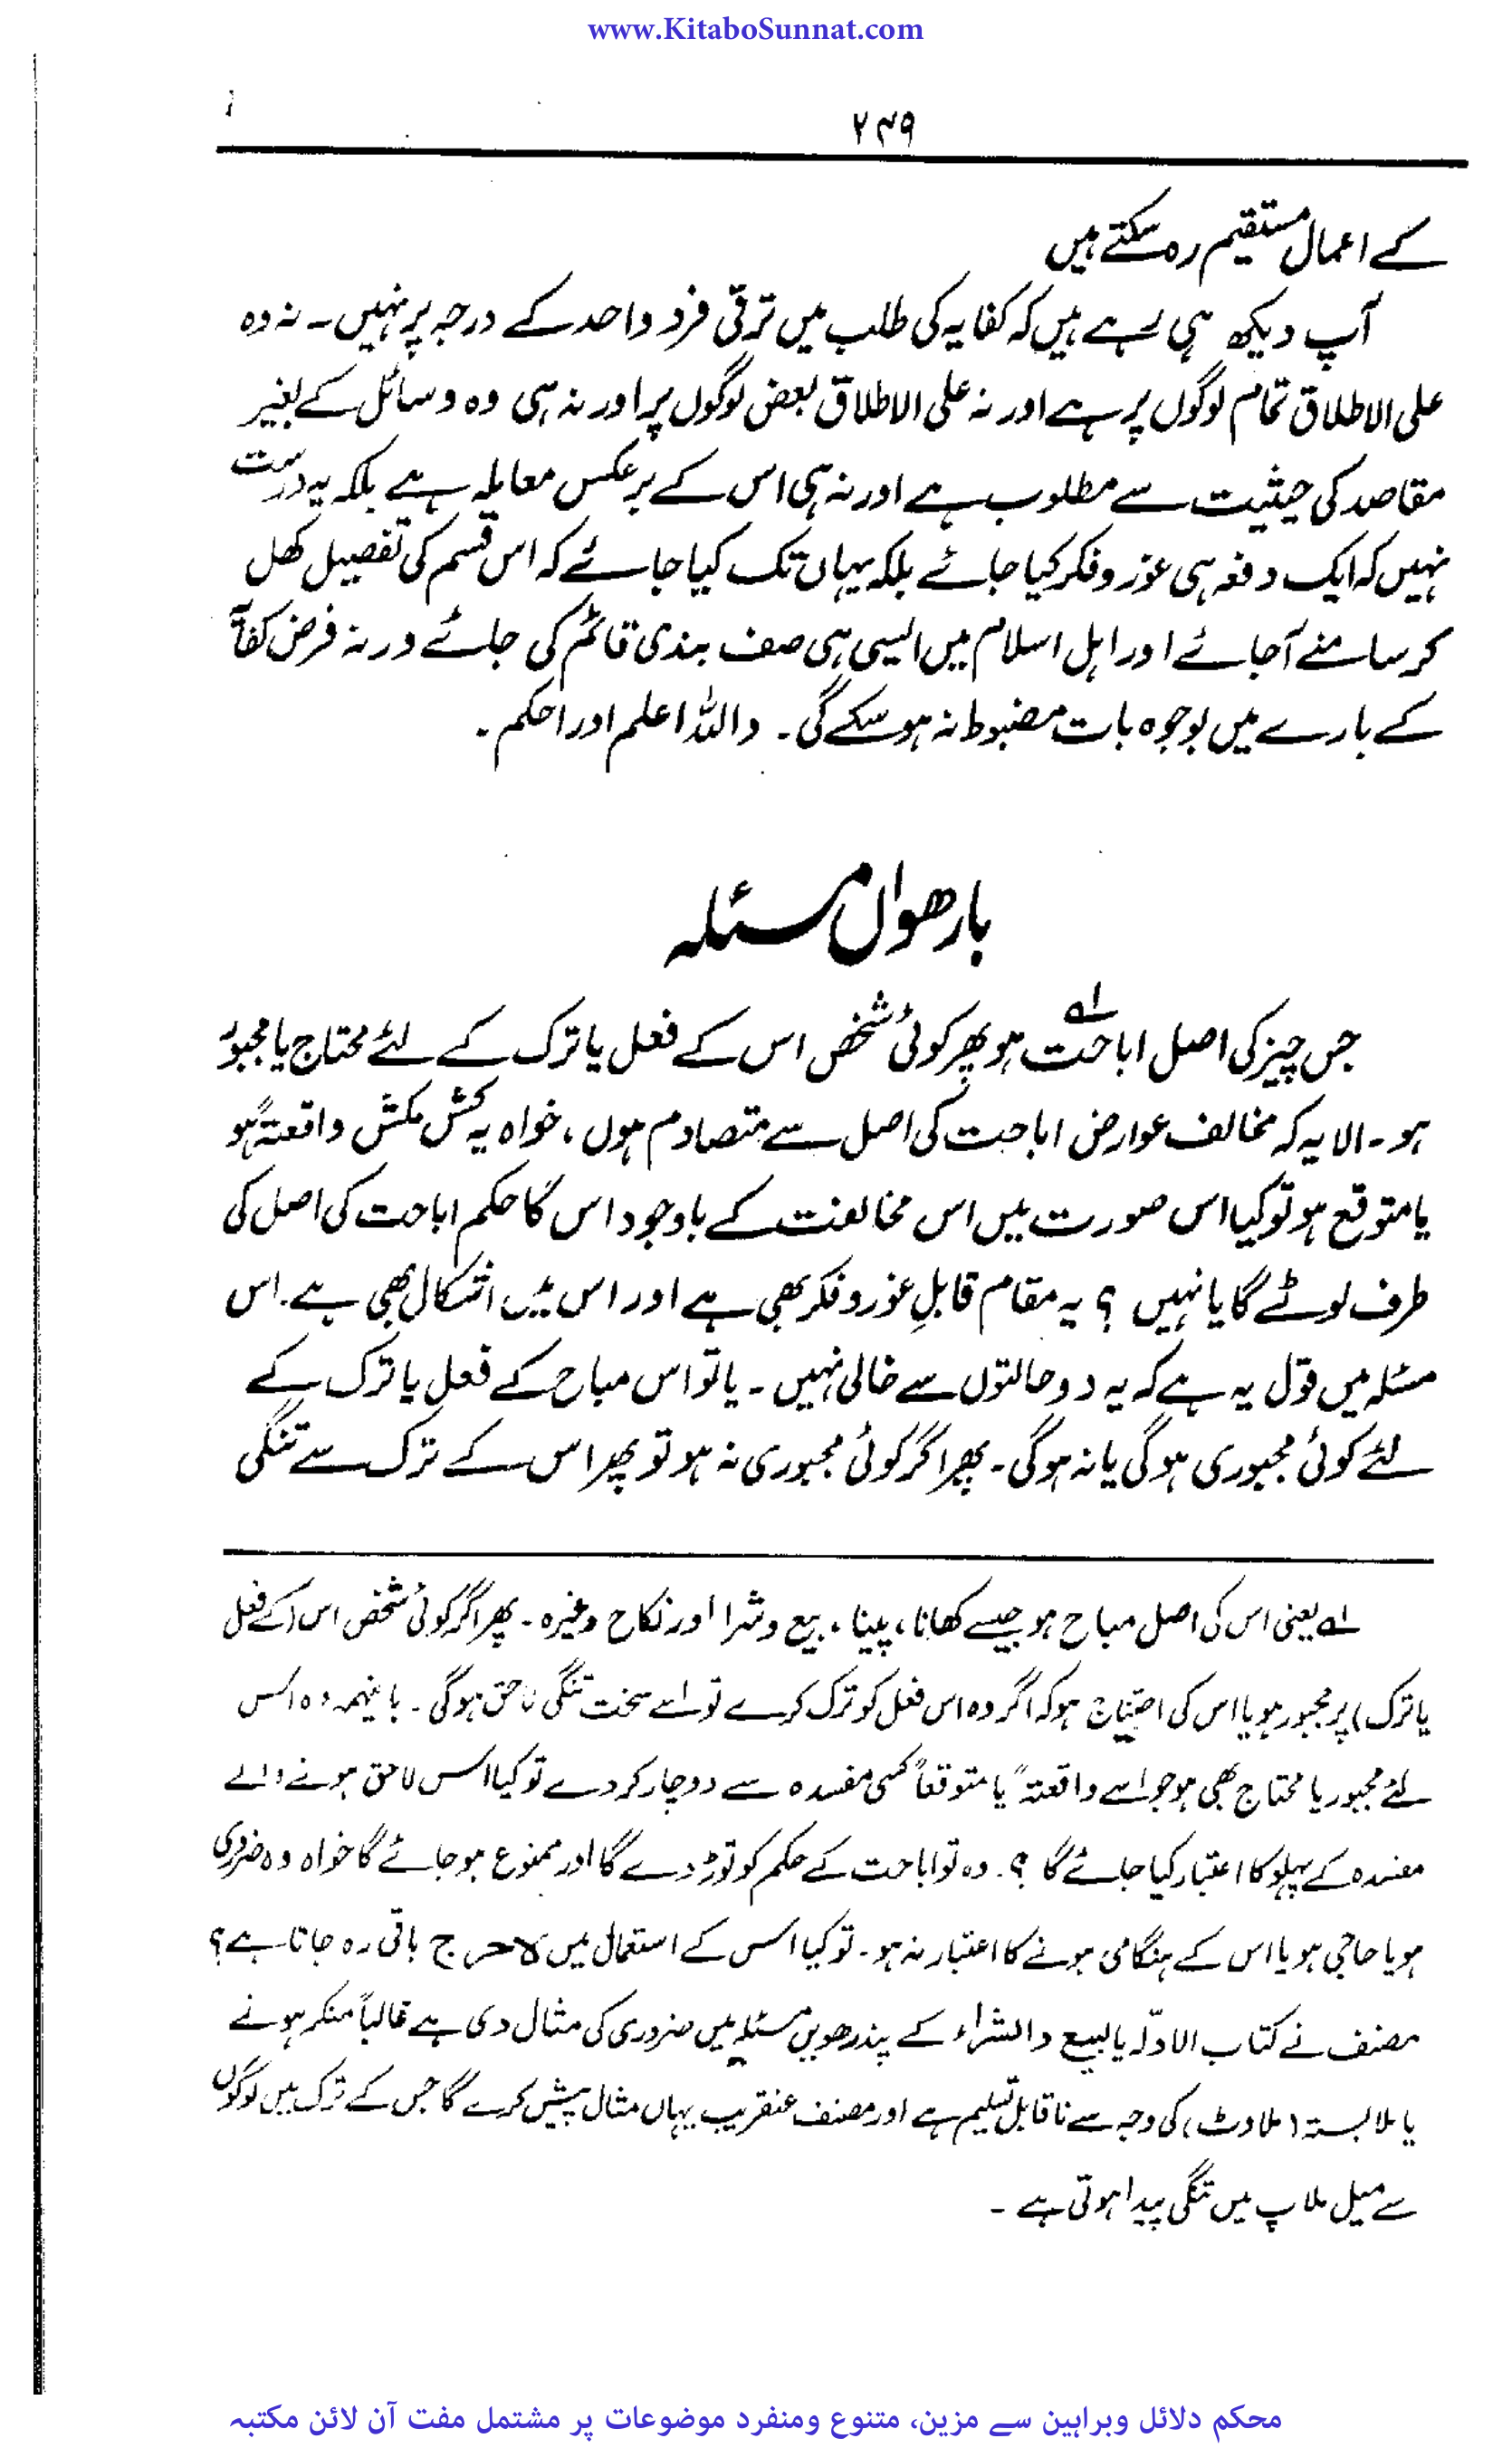 www.KitaboSunnat.com
۲۴۹
کے اعمال مستقیم رہ سکتے ہیں
آپ دیکھ ہی رہے ہیں کہ کفایہ کی طلب میں ترقی فرد واحد کے درجہ پر نہیں۔ نہ وہ
علی الاطلاق تمام لوگوں پر ہے اور نہ علی الاطلاق بعض لوگوں پر اور نہ ہی وہ وسائل کے بغیر
مقاصد کی حیثیت سے مطلوب ہے اور نہ ہی اس کے برعکس معاملہ ہے بلکہ یہ درست
نہیں کہ ایک دفعہ ہی غور و فکر کیا جائے بلکہ یہاں تک کیا جائے کہ اس قسم کی تفصیل کھل
کر سامنے آجائے اور اہل اسلام میں ایسی ہی صف بندی قائم کی جائے ورنہ فرض کفایہ
کے بارے میں بوجوہ بات مضبوط نہ ہو سکے گی۔ واللہ اعلم اور احکم۔
بارھواں مسئلہ
جس چیز کی اصل اباحت لہ ہو پھر کوئی شخص اس کے فعل یا ترک کے لئے محتاج یا مجبور
ہو۔ الا یہ کہ مخالف عوارض اباحت کی اصل سے متصادم ہوں، خواہ یہ کش مکش واقعتہً ہو
یا متوقع ہو تو کیا اس صورت میں اس مخالفت کے باوجود اس کا حکم اباحت کی اصل کی
طرف لوٹے گا یا نہیں ؟ یہ مقام قابلِ غور و فکر بھی ہے اور اس میں اشکال بھی ہے۔ اس
مسئلہ میں قول یہ ہے کہ یہ دو حالتوں سے خالی نہیں۔ یا تو اس مباح کے فعل یا ترک کے
لئے کوئی مجبوری ہو گی یا نہ ہو گی۔ پھر اگر کوئی مجبوری نہ ہو تو پھر اس کے ترک سے تنگی
لہ یعنی اس کی اصل مباح ہو جیسے کھانا، پینا، بیع و شرا اور نکاح وغیرہ۔ پھر اگر کوئی شخص اس (کے فعل
یا ترک) پر مجبور ہو یا اس کی احتیاج ہو کہ اگر وہ اس فعل کو ترک کرے تو اسے سخت تنگی لاحق ہو گی۔ باینہمہ وہ اس
لئے مجبور یا محتاج بھی ہو جو اسے واقعتہً یا متوقعاً کسی مفسدہ سے دوچار کر دے تو کیا اس لاحق ہونے والے
مفسدہ کے پہلو کا اعتبار کیا جائے گا ؟۔ وہ تو اباحت کے حکم کو توڑ دے گا اور ممنوع ہو جائے گا خواہ وہ ضروری
ہو یا حاجی ہو یا اس کے ہنگامی ہونے کا اعتبار نہ ہو۔ تو کیا اس کے استعمال میں لاحرج باقی رہ جاتا ہے؟
مصنف نے کتاب الادلّہ یا لبیع والشراء کے پندرھویں مسئلہ میں ضروری کی مثال دی ہے غالباً منکر ہونے
یا ملابستہ (ملاوٹ) کی وجہ سے ناقابل تسلیم ہے اور مصنف عنقریب یہاں مثال پیش کرے گا جس کے ترک میں لوگوں
سے میل ملاپ میں تنگی پیدا ہوتی ہے۔
محکم دلائل وبراہین سے مزین، متنوع ومنفرد موضوعات پر مشتمل مفت آن لائن مکتبہ